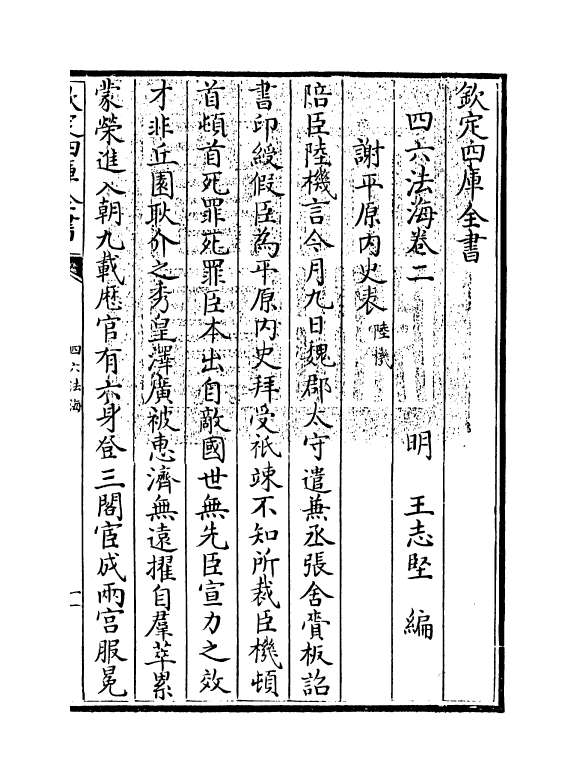 欽定四庫全書
四六法海卷二　明　王志堅　編
謝平原內史表　陸機
陪臣陸機言今月九日魏郡太守遣兼丞張含賫板詔
書印綬假臣為平原內史拜受祗竦不知所裁臣機頓
首頓首死罪死罪臣本出自敵國世無先臣宣力之效
才非丘園耿介之秀皇澤廣被惠濟無遠擢自羣萃累
蒙榮進入朝九載歴官有六身登三閣宦成兩宮服冕
四六法海